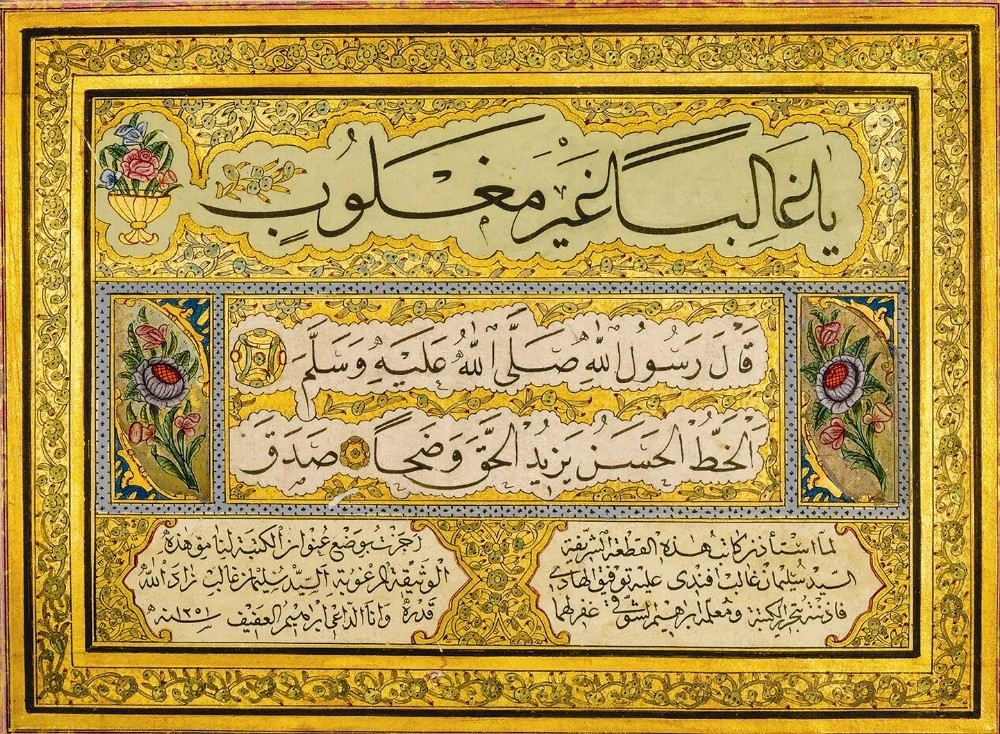 يَا غَالِبًا غَيْرَ مَغْلُوبٍ
قَالَ رَسُولُ اللهِ صَلَّى اللهُ عَلَيْهِ وَسَلَّمَ
الخَطُّ الحَسَنُ يَزِيدُ الحَقَّ وَضَحًا صَدَقَ
لما استأذن كاتب هذه القطعة الشريفة
السيد سليمان غالب افندى عليه توفيق الهادى
فاذنته بتحرير الكتبة ومعلمه ابرهيم الشوقى غفر لهما
اجزت بوضع عنوان الكتبة لنامق هذه
الوثيقة المرغوبة السيد سليمان غالب زاد الله
قدره وانا الداعى ابرهيم العفيف سنة ١٢٥١